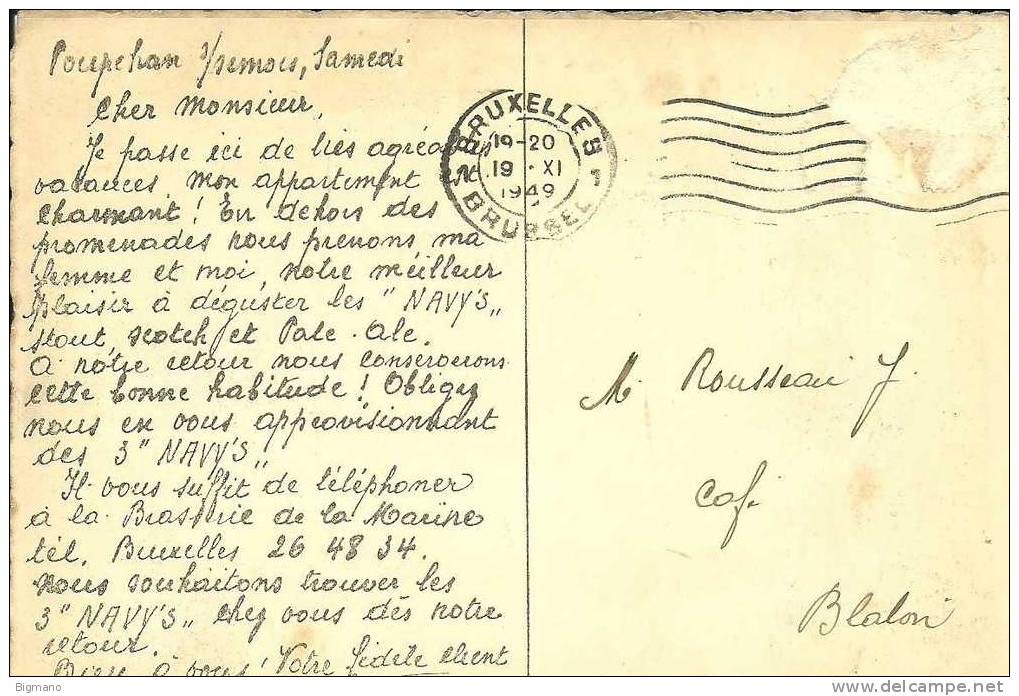 Poupehan s/semois, Samedi
Cher Monsieur,
Je passe ici de très agréables
vacances, mon appartement est
charmant ! En dehors des
promenades nous prenons ma
femme et moi, notre meilleur
plaisir à déguster les "NAVY'S„
stout, scotch et Pale-Ale.
A notre retour nous conserverons
cette bonne habitude ! Obligez
nous en vous approvisionnant
des 3 "NAVY'S„
Il vous suffit de téléphoner
à la Brasserie de la Marine
tél. Bruxelles 26 48 34.
nous souhaitons trouver les
3 "NAVY'S„ chez vous dès notre
retour.
Bien à vous ! Votre fidèle client
BRUXELLES
19-20
19 XI
1949
1
BRUSSEL
M. Rousseau J.
Caf.
Blaton
Bigmano
www.delcampe.net